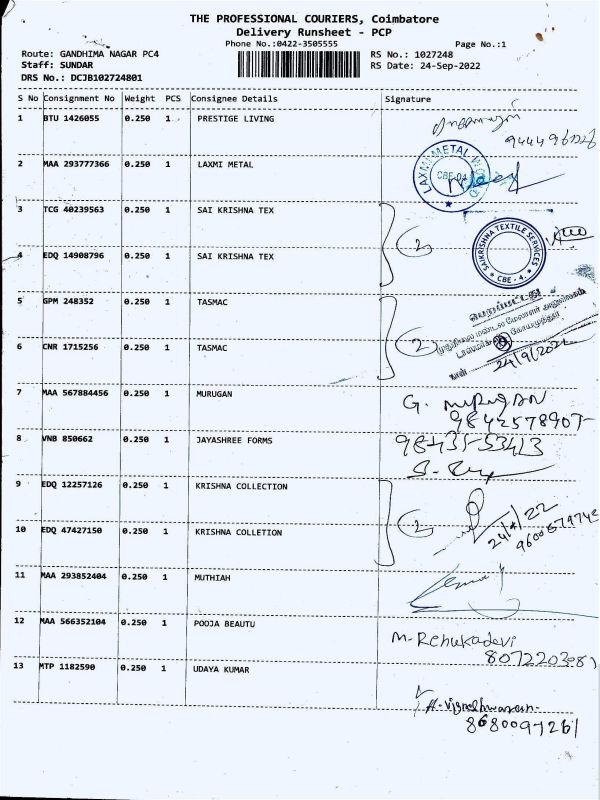 THE PROFESSIONAL COURIERS, Coimbatore
Delivery Runsheet - PCP
Phone No.:0422-3505555
Page No.:1
Route: GANDHIMA NAGAR PC4
RS No.: 1027248
Staff: SUNDAR
RS Date: 24-Sep-2022
DRS No.: DCJB102724801
S No Consignment No Weight PCS Consignee Details Signature
1 BTU 1426055 0.250 1 PRESTIGE LIVING
2 MAA 293777366 0.250 1 LAXMI METAL
LAXMI METAL
CBE-04
3 TCG 40239563 0.250 1 SAI KRISHNA TEX
2
SAIKRISHNA TEXTILE SERVICES
* CBE - 4. *
4 EDQ 14908796 0.250 1 SAI KRISHNA TEX
5 GPM 248352 0.250 1 TASMAC
2
6 CNR 1715256 0.250 1 TASMAC
7 MAA 567884456 0.250 1 MURUGAN
G. MURUGAN
9842578907
8 VNB 850662 0.250 1 JAYASHREE FORMS
98435-53413
9 EDQ 12257126 0.250 1 KRISHNA COLLECTION
2
10 EDQ 47427150 0.250 1 KRISHNA COLLETION
11 MAA 293852404 0.250 1 MUTHIAH
12 MAA 566352104 0.250 1 POOJA BEAUTU
M. Renukadevi
13 MTP 1182590 0.250 1 UDAYA KUMAR
8680097261